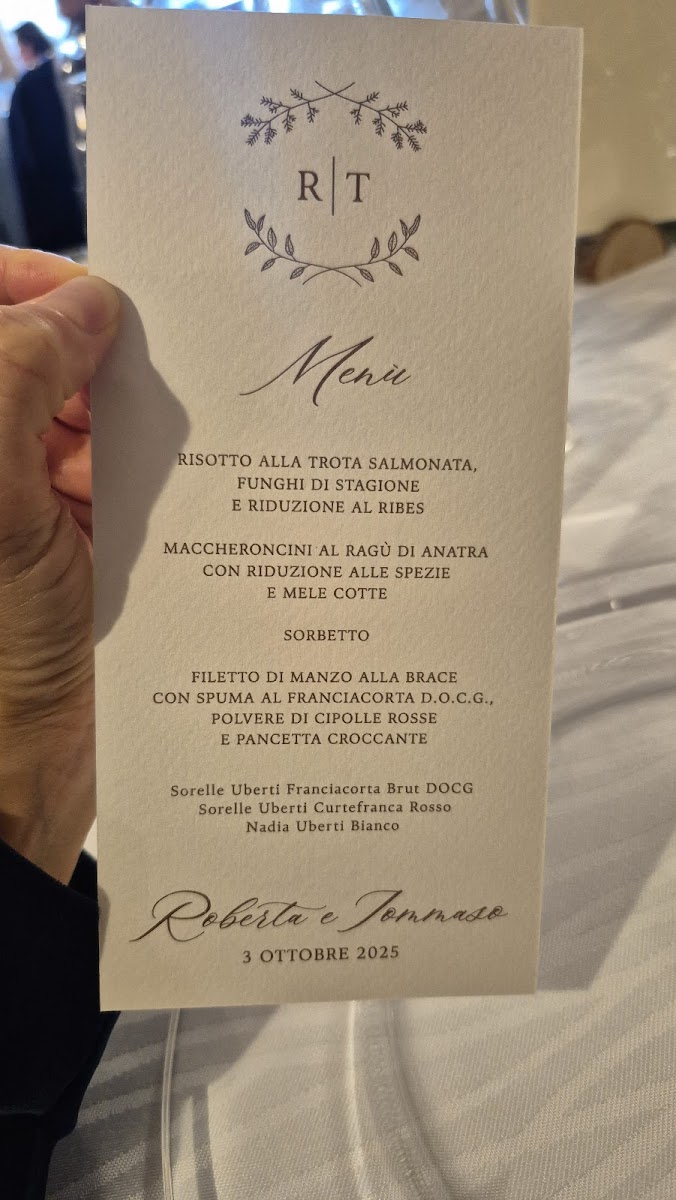 R|T
Menù
RISOTTO ALLA TROTA SALMONATA,
FUNGHI DI STAGIONE
E RIDUZIONE AL RIBES
MACCHERONCINI AL RAGÙ DI ANATRA
CON RIDUZIONE ALLE SPEZIE
E MELE COTTE
SORBETTO
FILETTO DI MANZO ALLA BRACE
CON SPUMA AL FRANCIACORTA D.O.C.G.,
POLVERE DI CIPOLLE ROSSE
E PANCETTA CROCCANTE
Sorelle Uberti Franciacorta Brut DOCG
Sorelle Uberti Curtefranca Rosso
Nadia Uberti Bianco
Roberta e Tommaso
3 OTTOBRE 2025